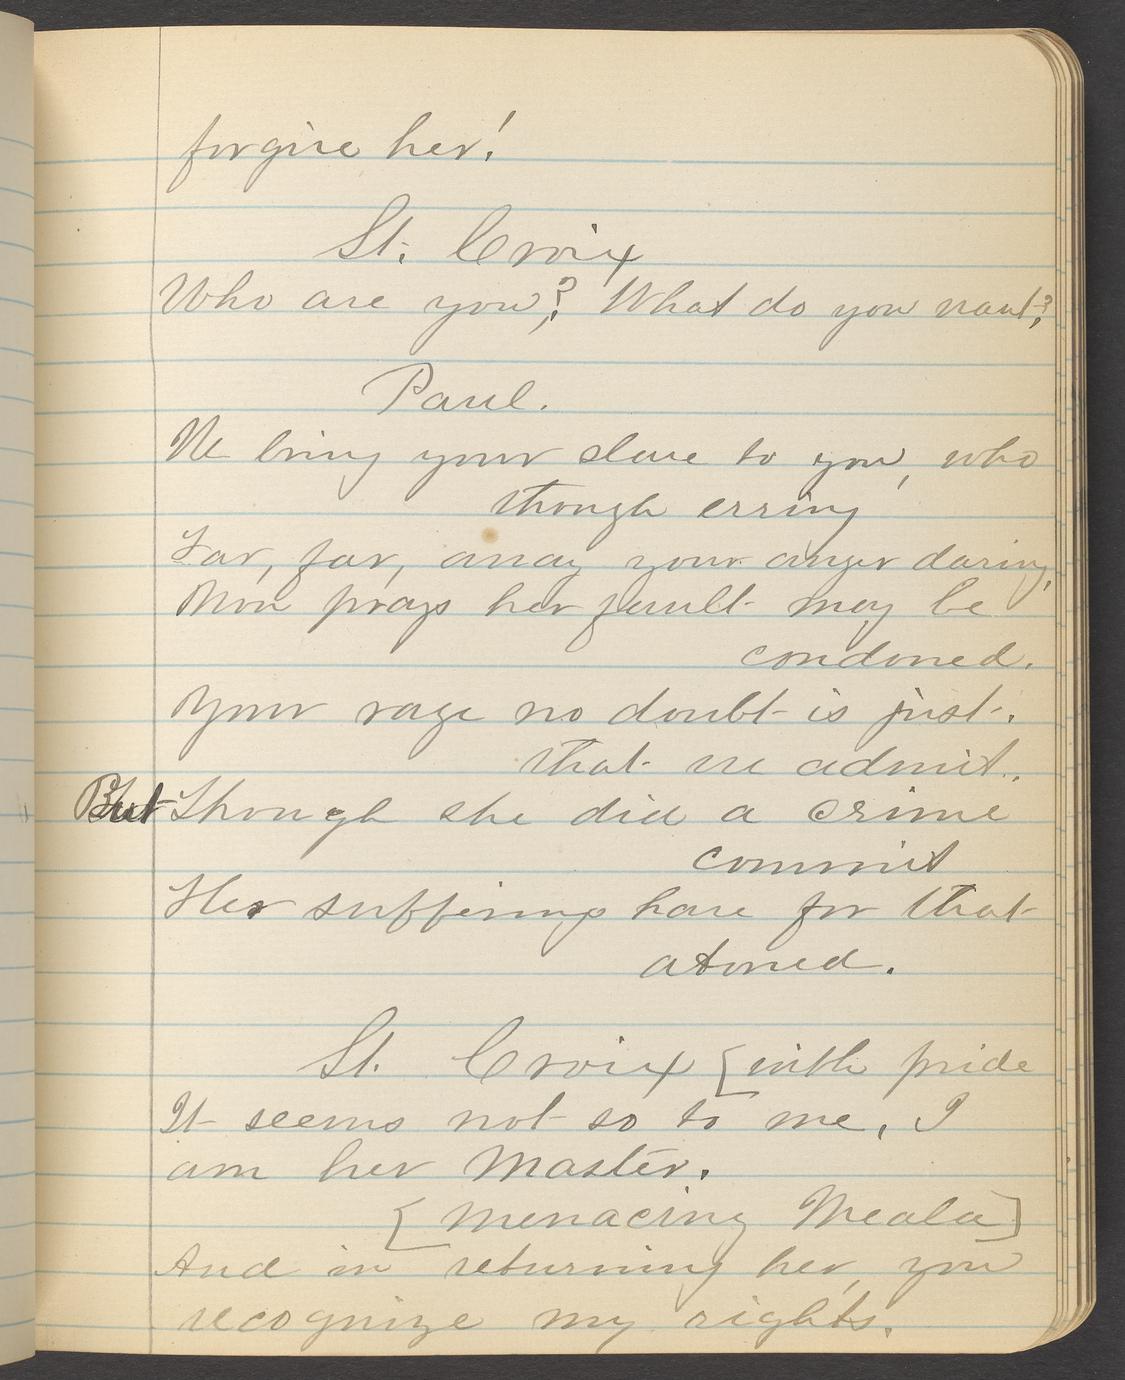 forgive her!
St. Croix
Who are you? What do you want?
Paul.
We bring your slave to you, who
though erring
Far, far, away your anger daring,
Now prays her fault may be
condoned.
Your rage no doubt is just.
that we admit.
But Though she did a crime
commit
Her sufferings have for that
atoned.
St. Croix [with pride
It seems not so to me. I
am her Master.
[menacing Meala]
And in returning her, you
recognize my rights.